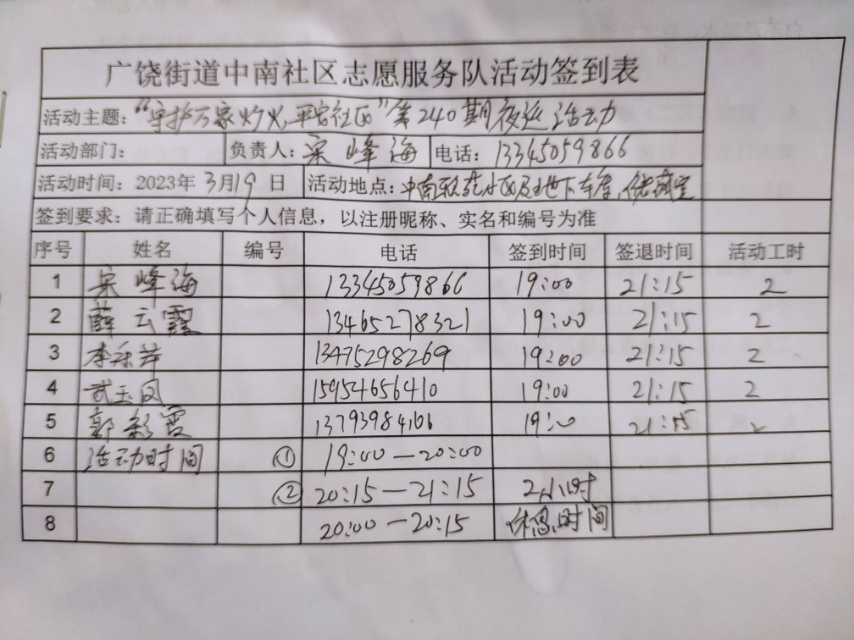 广饶街道中南社区志愿服务队活动签到表
活动主题："守护万家灯火,平安社区"第240期夜巡活动
活动部门： 负责人：宋峰海 电话：13345059866
活动时间：2023年3月19日 活动地点：中南 小区及地下车库、储藏室
签到要求：请正确填写个人信息，以注册昵称、实名和编号为准
序号 姓名 编号 电话 签到时间 签退时间 活动工时
1 宋峰海 13345059866 19:00 21:15 2
2 薛云霞 13465278321 19:00 21:15 2
3 李 萍 13475298269 19:00 21:15 2
4 武玉凤 15954656410 19:00 21:15 2
5 郭彩霞 13793984166 19:0 21:15 2
6 活动时间 ① 19:00—20:00
7 ② 20:15—21:15 2小时
8 20:00—20:15 休息时间